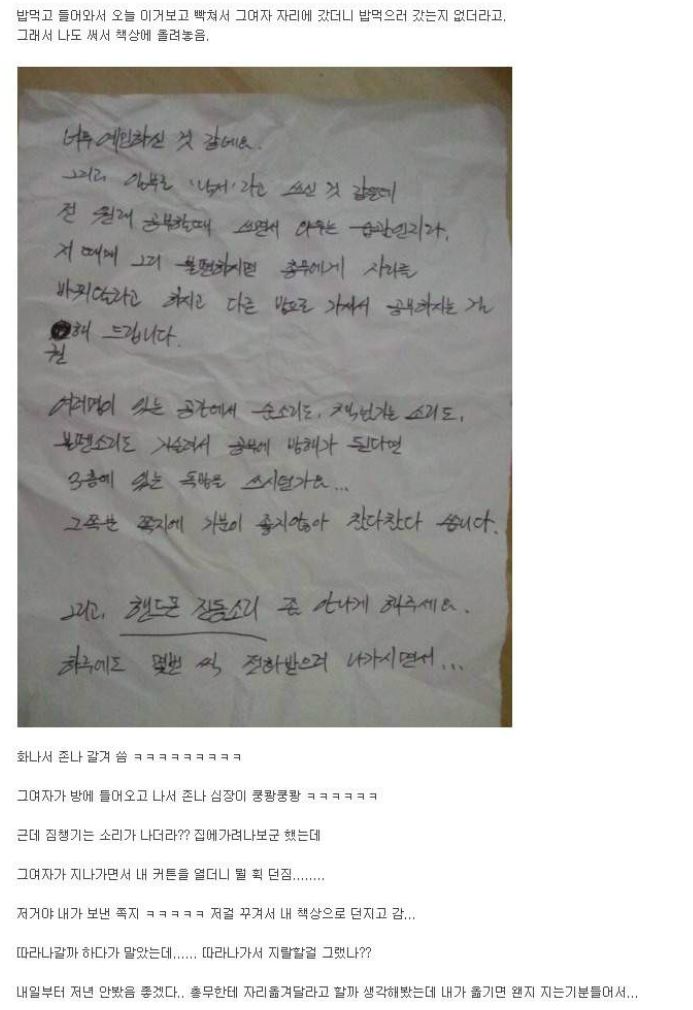 밥먹고 들어와서 오늘 이거보고 빡쳐서 그여자 자리에 갔더니 밥먹으러 갔는지 없더라고.
그래서 나도 써서 책상에 올려놓음.
너무 예민하신 것 같네요.
그리고 일부로 '낙서'라고 쓰신 것 같은데
전 원래 공부할때 쓰면서 외우는 습관인지라,
저 때매 그리 불편하시면 총무에게 자리를
바꿔달라고 하시고 다른 방으로 가셔서 공부하시는 걸
해 드립니다.
권
여러명이 있는 공간에서 숨소리도, 책넘기는 소리도,
볼펜소리도 거슬려서 공부에 방해가 된다면
3층에 있는 독방을 쓰시던가요...
그쪽분 쪽지에 기분이 좋지않아 찬다찬다 씁니다.
그리고, 핸드폰 진동소리 좀 안나게 해주세요.
하루에도 몇번 씩 전화받으러 나가시면서...
화나서 존나 갈겨 씀 ㅋㅋㅋㅋㅋㅋㅋㅋㅋ
그여자가 방에 들어오고 나서 존나 심장이 쿵쾅쿵쾅 ㅋㅋㅋㅋㅋㅋ
근데 짐챙기는 소리가 나더라?? 집에가려나보군 했는데
그여자가 지나가면서 내 커튼을 열더니 뭘 휙 던짐........
저거야 내가 보낸 쪽지 ㅋㅋㅋㅋㅋ 저걸 꾸겨서 내 책상으로 던지고 감...
따라나갈까 하다가 말았는데...... 따라나가서 지랄할걸 그랬나??
내일부터 저년 안봤음 좋겠다.. 총무한테 자리옮겨달라고 할까 생각해봤는데 내가 옮기면 왠지 지는기분들어서...